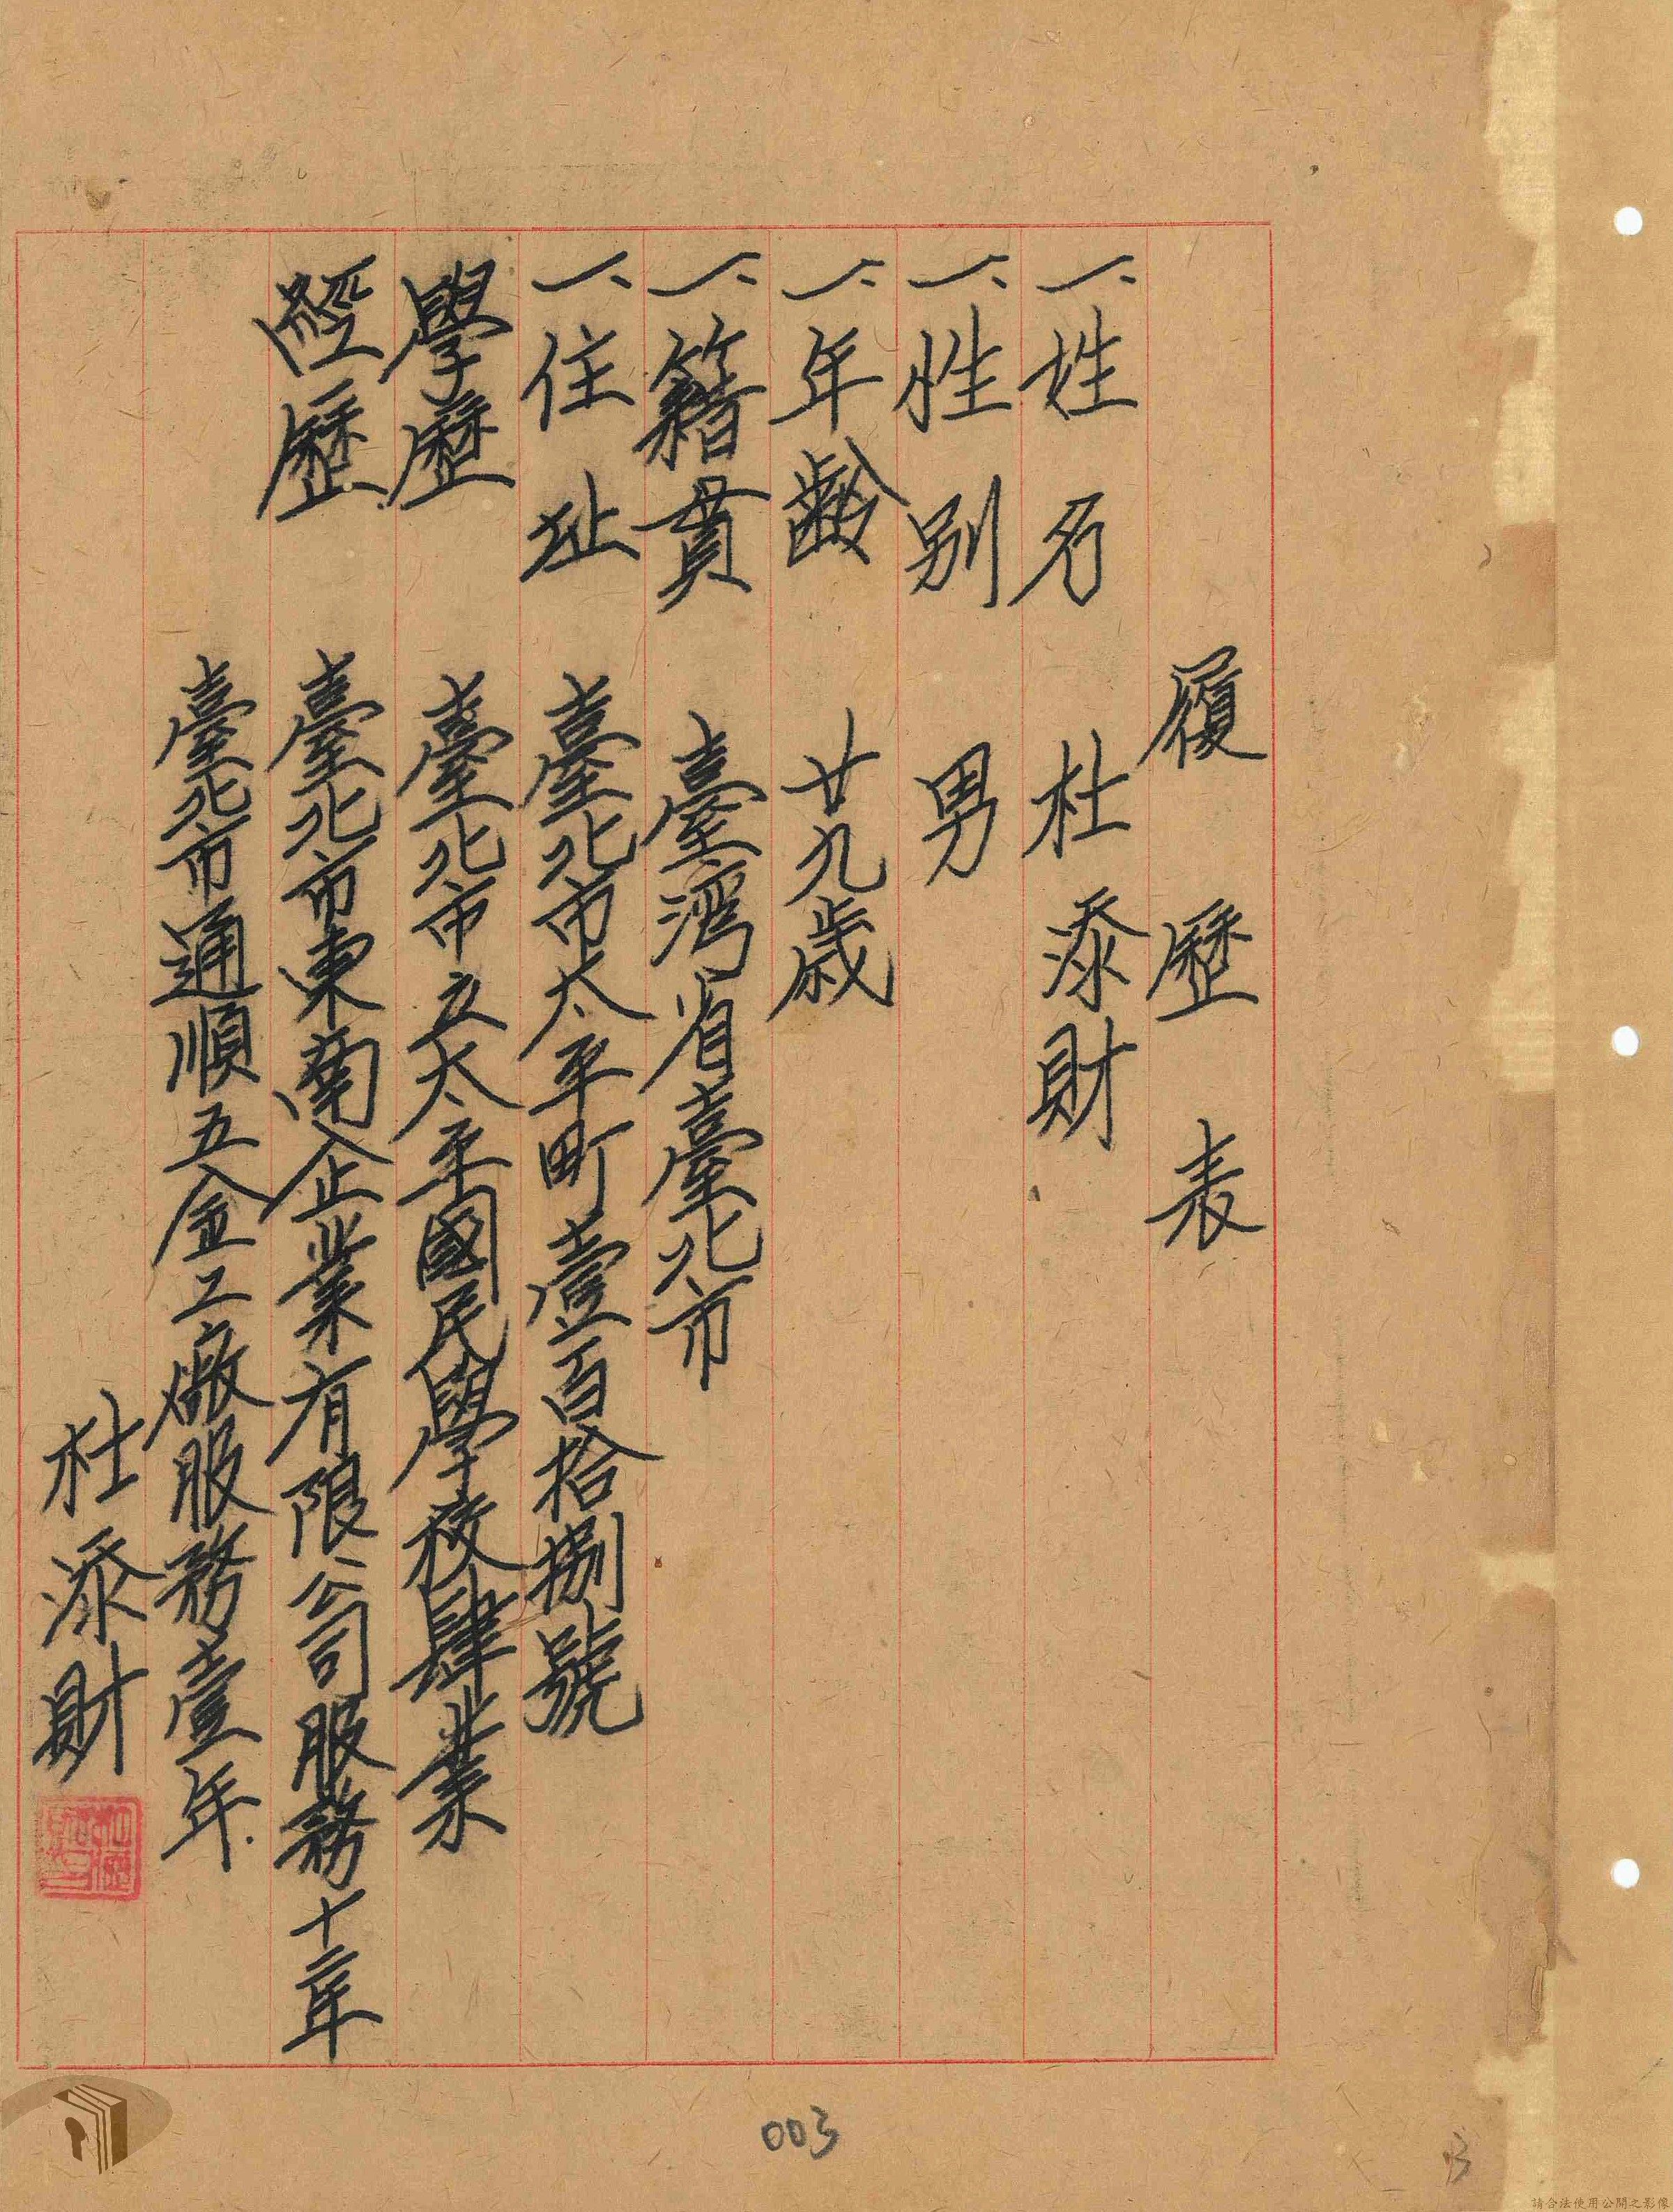 履歷表
一、姓名 杜添財
一、性別 男
一、年齡 廿九歲
一、籍貫 臺灣省臺北市
一、住址 臺北市太平町壹百拾捌號
學歷 臺北市立太平國民學校肄業
經歷 臺北市東南企業有限公司服務十二年
臺北市通順五金工廠服務壹年.
杜添財
003
請合法使用公開之影像